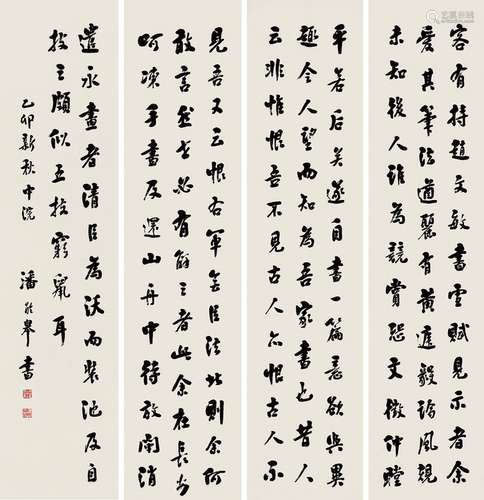 客有持趙文敏書雪賦見示者余
愛其筆法遒麗有黃庭毅論風規
未知後人誰為競賞恐文徵仲瞠
乎若后矣遂自書一篇意欲與異
趣令人望而知為吾家書也昔人
云非惟恨吾不見古人亦恨古人不
見吾又云恨右軍無臣法此則余何
敢言然世必有解之者此余在長安
呵凍手書及還山舟中待放閘消
遣永晝者清臣為沃而裝池及自
披之頗似五技窮鼠耳
乙卯新秋中浣 潘齡皋書